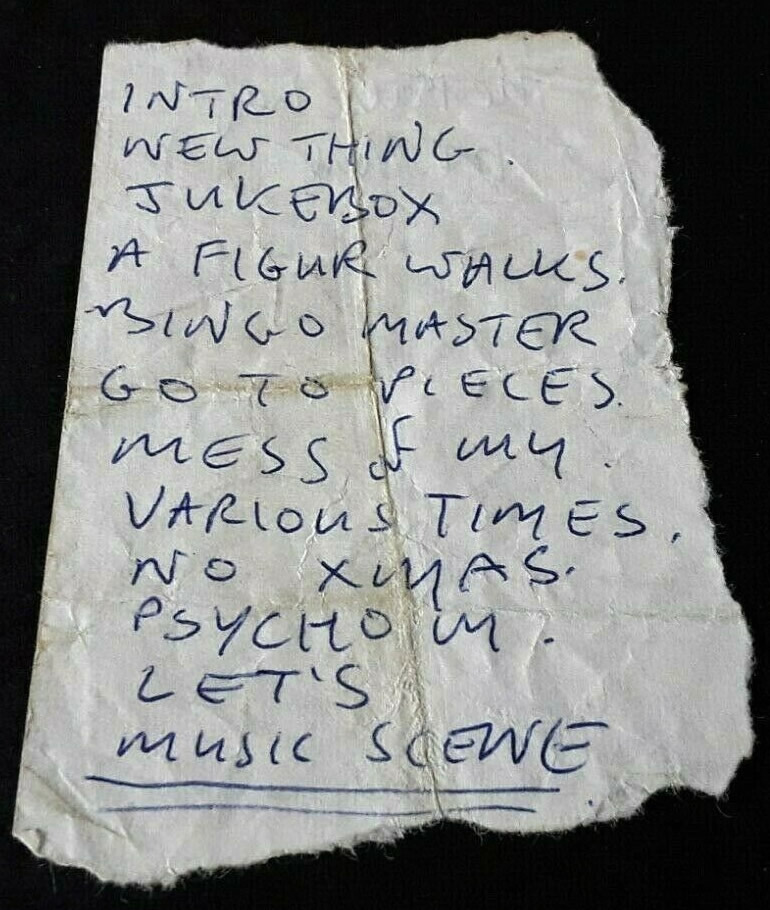 INTRO
NEW THING.
JUKEBOX
A FIGUR WALKS.
BINGO MASTER
GO TO PIECES.
MESS OF MY.
VARIOUS TIMES.
NO XMAS.
PSYCHO M.
LET'S
MUSIC SCENE